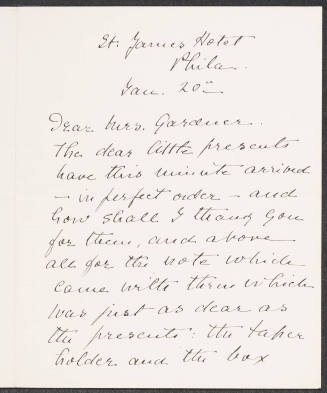 St. James Hotel
Phila.
Jan. 20th
Dear Mrs. Gardner.
The dear little presents
have this minute arrived
- in perfect order - and
how shall I thank you
for them, and above
all for the note which
came with them which
was just as dear as
the presents: the taper
holder and the box